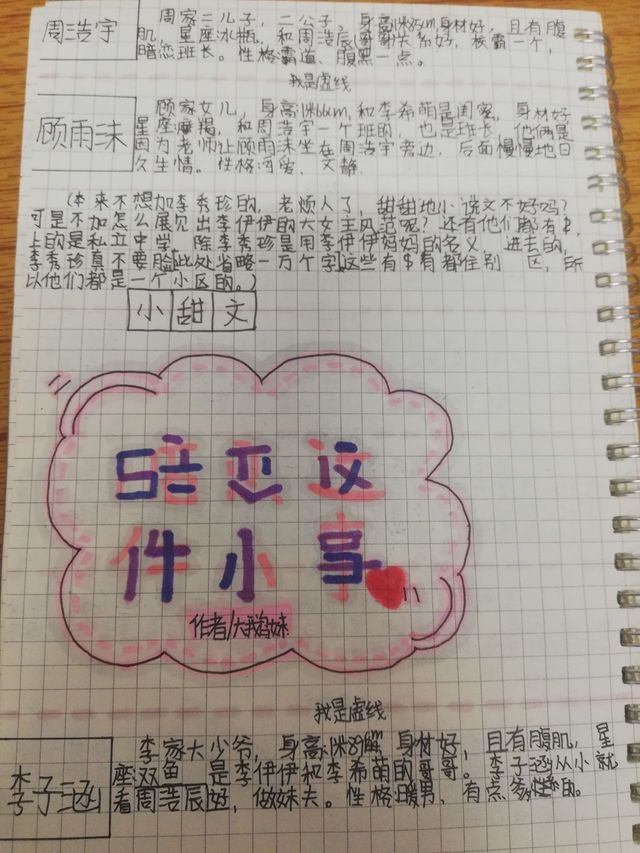 周浩宇
周家二儿子，二公子，身高米身材好，且有腹
肌，星座水瓶，和周浩辰哥哥关系好，校霸一个，
暗恋班长。性格霸道、腹黑一点。
我是虚线
顾雨沫
顾家女儿，身高1米66cm，和李希萌是闺蜜，身材好
星座摩羯，和周浩宇一个班的，也是班长，他俩是
因为老师让顾雨沫坐在周浩宇旁边，后面慢慢地日
久生情。性格可爱、文静。
（本来不想加李秀珍的，老烦人了，甜甜地小说文不好吗？
可是不加怎么展现出李伊伊的大女主风范呢？还有他们都有$，
上的是私立中学，除李秀珍是用李伊伊妈妈的名义，进去的，
李秀珍真不要脸[此处省略一万个字]这些有$有都住别 区，所
以他们都是一个小区的。）
小甜文
暗恋这
件小事
作者/大我妈妹
我是虚线
李子涵
李家大少爷，身高米身材好，且有腹肌，星
座双鱼，是李伊伊和李希萌的哥哥。李子涵从小就
看周浩辰好，做妹夫。性格暖男，有点的。